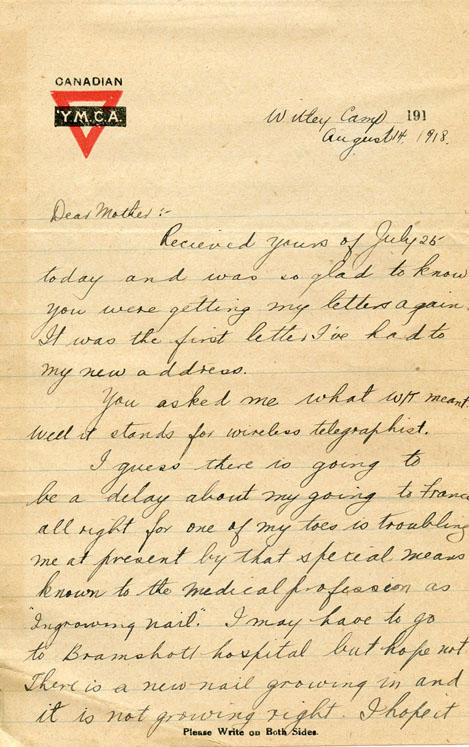 CANADIAN
Y.M.C.A.
Witley Camp 191
August 14, 1918.
Dear Mother:-
Recieved yours of July 25
today and was so glad to know
you were getting my letters again.
It was the first letter I've had to
my new address.
You asked me what W/T meant
well it stands for wireless telegraphist.
I guess there is going to
be a delay about my going to France
all right for one of my toes is troubling
me at present by that special means
known to the medical profession as
"Ingrowing nail". I may have to go
to Bramshott hospital but hope not
There is a new nail growing in and
it is not growing right. I hope it
Please Write on Both Sides.